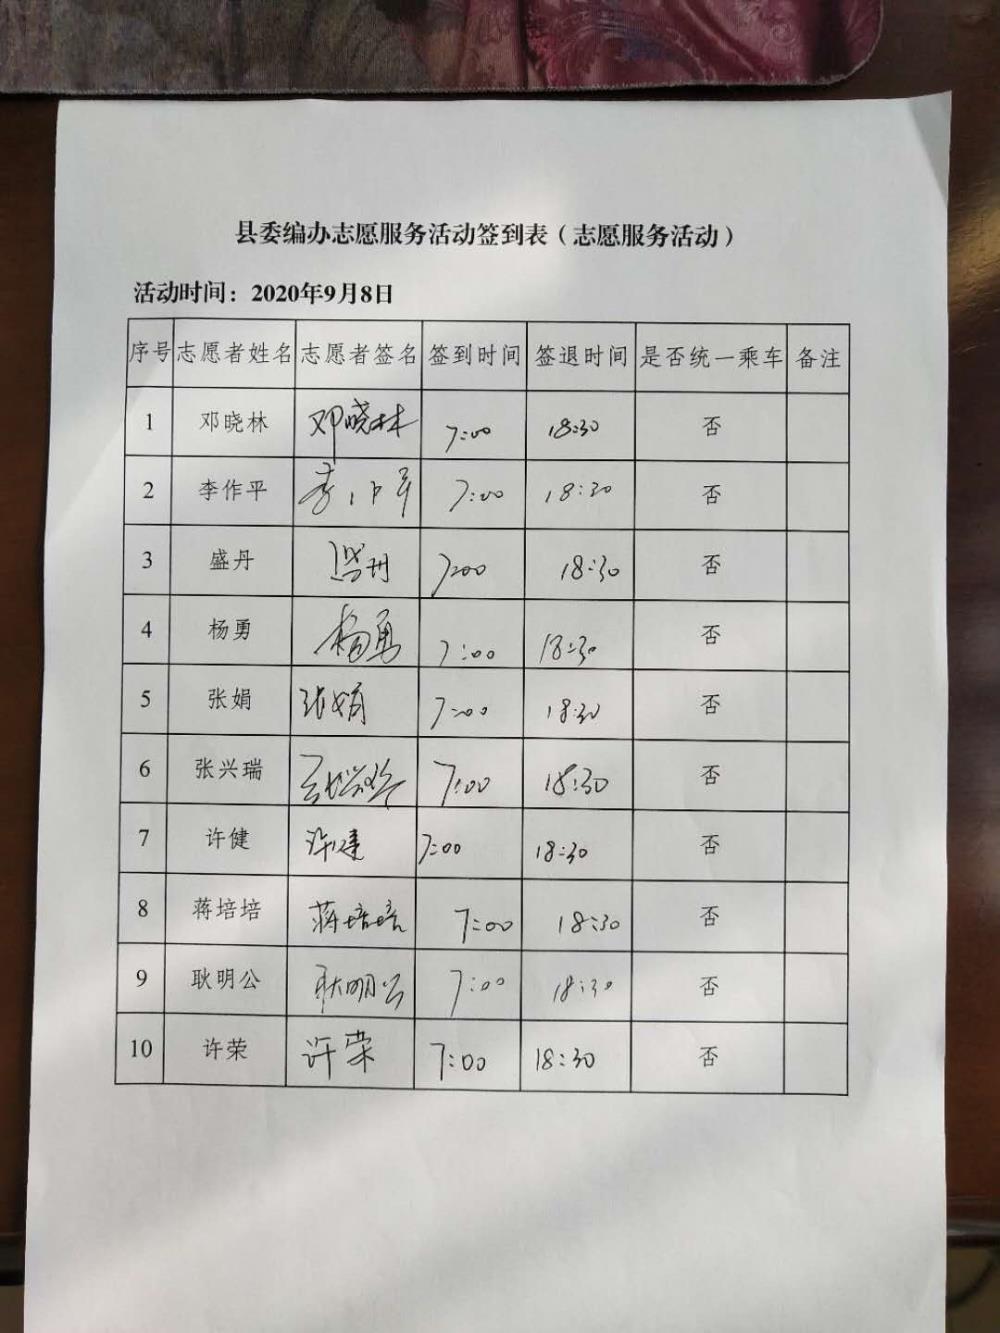 县委编办志愿服务活动签到表（志愿服务活动）
活动时间：2020年9月8日
序号 志愿者姓名 志愿者签名 签到时间 签退时间 是否统一乘车 备注
1 邓晓林 邓晓林 7:00 18:30 否
2 李作平 李作平 7:00 18:30 否
3 盛丹 盛丹 7:00 18:30 否
4 杨勇 杨勇 7:00 18:30 否
5 张娟 张娟 7:00 18:30 否
6 张兴瑞 张兴瑞 7:00 18:30 否
7 许健 许健 7:00 18:30 否
8 蒋培培 蒋培培 7:00 18:30 否
9 耿明公 耿明公 7:00 18:30 否
10 许荣 许荣 7:00 18:30 否